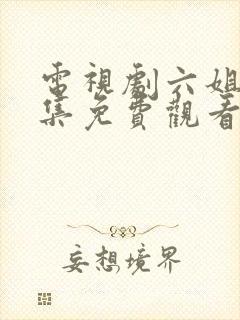 電視劇六姐
集免費觀看
妄想境界